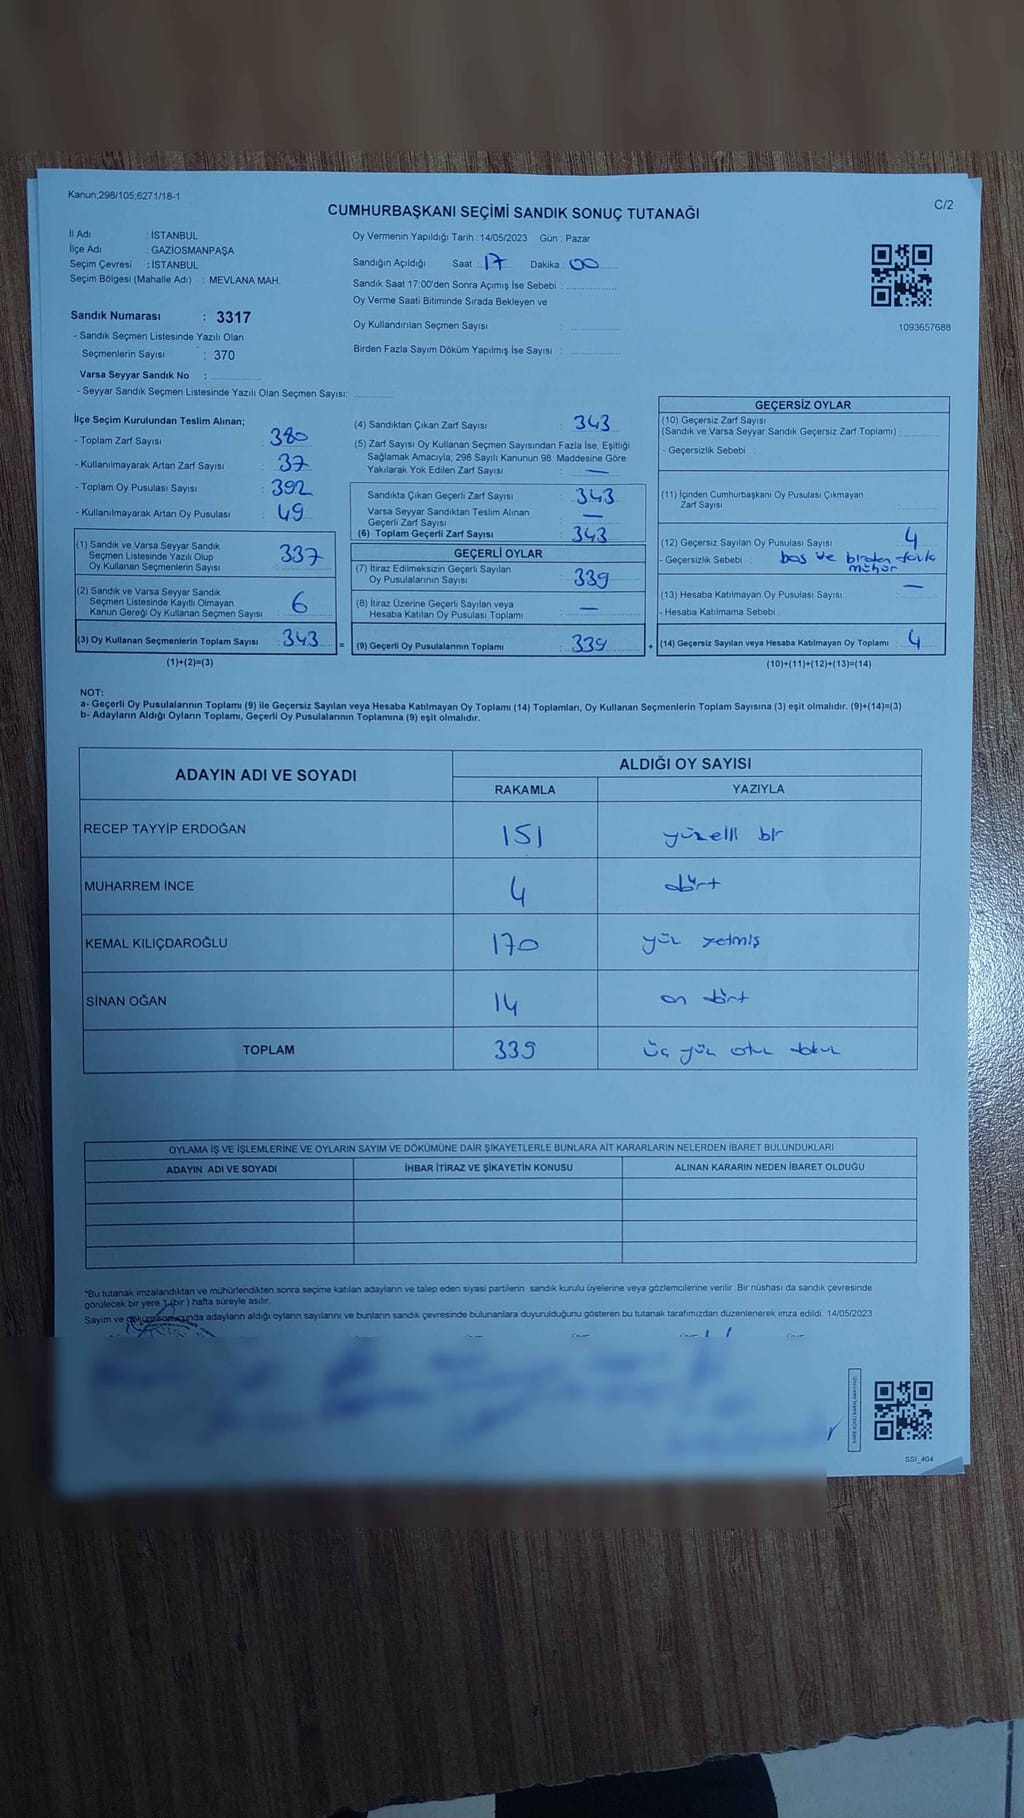 Kanun;298/105;6271/18-1
C/2
CUMHURBAŞKANI SEÇİMİ SANDIK SONUÇ TUTANAĞI
İl Adı : İSTANBUL
İlçe Adı : GAZİOSMANPAŞA
Seçim Çevresi : İSTANBUL
Seçim Bölgesi (Mahalle Adı) : MEVLANA MAH.
Oy Vermenin Yapıldığı Tarih : 14/05/2023 Gün : Pazar
Sandığın Açıldığı Saat : 17 Dakika : 00
Sandık Saat 17:00'den Sonra Açımış İse Sebebi :
Oy Verme Saati Bitiminde Sırada Bekleyen ve
Oy Kullandırılan Seçmen Sayısı :
Birden Fazla Sayım Döküm Yapılmış İse Sayısı :
1093657688
Sandık Numarası : 3317
- Sandık Seçmen Listesinde Yazılı Olan
Seçmenlerin Sayısı : 370
Varsa Seyyar Sandık No :
- Seyyar Sandık Seçmen Listesinde Yazılı Olan Seçmen Sayısı:
İlçe Seçim Kurulundan Teslim Alınan;
- Toplam Zarf Sayısı : 380
- Kullanılmayarak Artan Zarf Sayısı : 37
- Toplam Oy Pusulası Sayısı : 392
- Kullanılmayarak Artan Oy Pusulası : 49
(1) Sandık ve Varsa Seyyar Sandık
Seçmen Listesinde Yazılı Olup
Oy Kullanan Seçmenlerin Sayısı : 337
(2) Sandık ve Varsa Seyyar Sandık
Seçmen Listesinde Kayıtlı Olmayan
Kanun Gereği Oy Kullanan Seçmen Sayısı : 6
(3) Oy Kullanan Seçmenlerin Toplam Sayısı : 343 =
(1)+(2)=(3)
(4) Sandıktan Çıkan Zarf Sayısı : 343
(5) Zarf Sayısı Oy Kullanan Seçmen Sayısından Fazla İse, Eşitliği
Sağlamak Amacıyla; 298 Sayılı Kanunun 98. Maddesine Göre
Yakılarak Yok Edilen Zarf Sayısı : —
Sandıkta Çıkan Geçerli Zarf Sayısı : 343
Varsa Seyyar Sandıktan Teslim Alınan
Geçerli Zarf Sayısı : —
(6) Toplam Geçerli Zarf Sayısı : 343
GEÇERLİ OYLAR
(7) İtiraz Edilmeksizin Geçerli Sayılan
Oy Pusulalarının Sayısı : 339
(8) İtiraz Üzerine Geçerli Sayılan veya
Hesaba Katılan Oy Pusulası Toplamı : —
(9) Geçerli Oy Pusulalarının Toplamı : 339 +
GEÇERSİZ OYLAR
(10) Geçersiz Zarf Sayısı
(Sandık ve Varsa Seyyar Sandık Geçersiz Zarf Toplamı) :
- Geçersizlik Sebebi :
(11) İçinden Cumhurbaşkanı Oy Pusulası Çıkmayan
Zarf Sayısı :
(12) Geçersiz Sayılan Oy Pusulası Sayısı : 4
- Geçersizlik Sebebi : boş ve birden fazla
mühür
(13) Hesaba Katılmayan Oy Pusulası Sayısı : —
- Hesaba Katılmama Sebebi :
(14) Geçersiz Sayılan veya Hesaba Katılmayan Oy Toplamı : 4
(10)+(11)+(12)+(13)=(14)
NOT:
a- Geçerli Oy Pusulalarının Toplamı (9) ile Geçersiz Sayılan veya Hesaba Katılmayan Oy Toplamı (14) Toplamları, Oy Kullanan Seçmenlerin Toplam Sayısına (3) eşit olmalıdır. (9)+(14)=(3)
b- Adayların Aldığı Oyların Toplamı, Geçerli Oy Pusulalarının Toplamına (9) eşit olmalıdır.
ADAYIN ADI VE SOYADI
ALDIĞI OY SAYISI
RAKAMLA YAZIYLA
RECEP TAYYİP ERDOĞAN 151 yüzelli bir
MUHARREM İNCE 4 dört
KEMAL KILIÇDAROĞLU 170 yüz yetmiş
SİNAN OĞAN 14 on dört
TOPLAM 339 üç yüz otuz dokuz
OYLAMA İŞ VE İŞLEMLERİNE VE OYLARIN SAYIM VE DÖKÜMÜNE DAİR ŞİKAYETLERLE BUNLARA AİT KARARLARIN NELERDEN İBARET BULUNDUKLARI
ADAYIN ADI VE SOYADI İHBAR İTİRAZ VE ŞİKAYETİN KONUSU ALINAN KARARIN NEDEN İBARET OLDUĞU
*Bu tutanak imzalandıktan ve mühürlendikten sonra seçime katılan adayların ve talep eden siyasi partilerin sandık kurulu üyelerine veya gözlemcilerine verilir. Bir nüshası da sandık çevresinde
görülecek bir yere 1 (bir) hafta süreyle asılır.
Sayım ve döküm sonucunda adayların aldığı oyların sayılarını ve bunların sandık çevresinde bulunanlara duyurulduğunu gösteren bu tutanak tarafımızdan düzenlenerek imza edildi. 14/05/2023
SSI_404